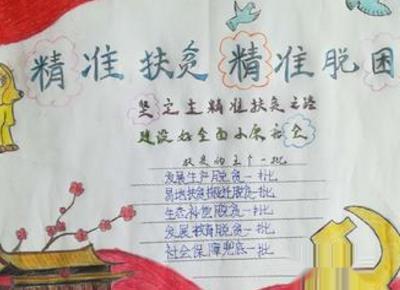 精准扶贫 精准脱困
坚定走精准扶贫之路
建设好全面小康社会
扶贫的五个一批
发展生产脱贫一批
易地扶贫搬迁脱贫一批
生态补偿脱贫一批
发展教育脱贫一批
社会保障兜底一批